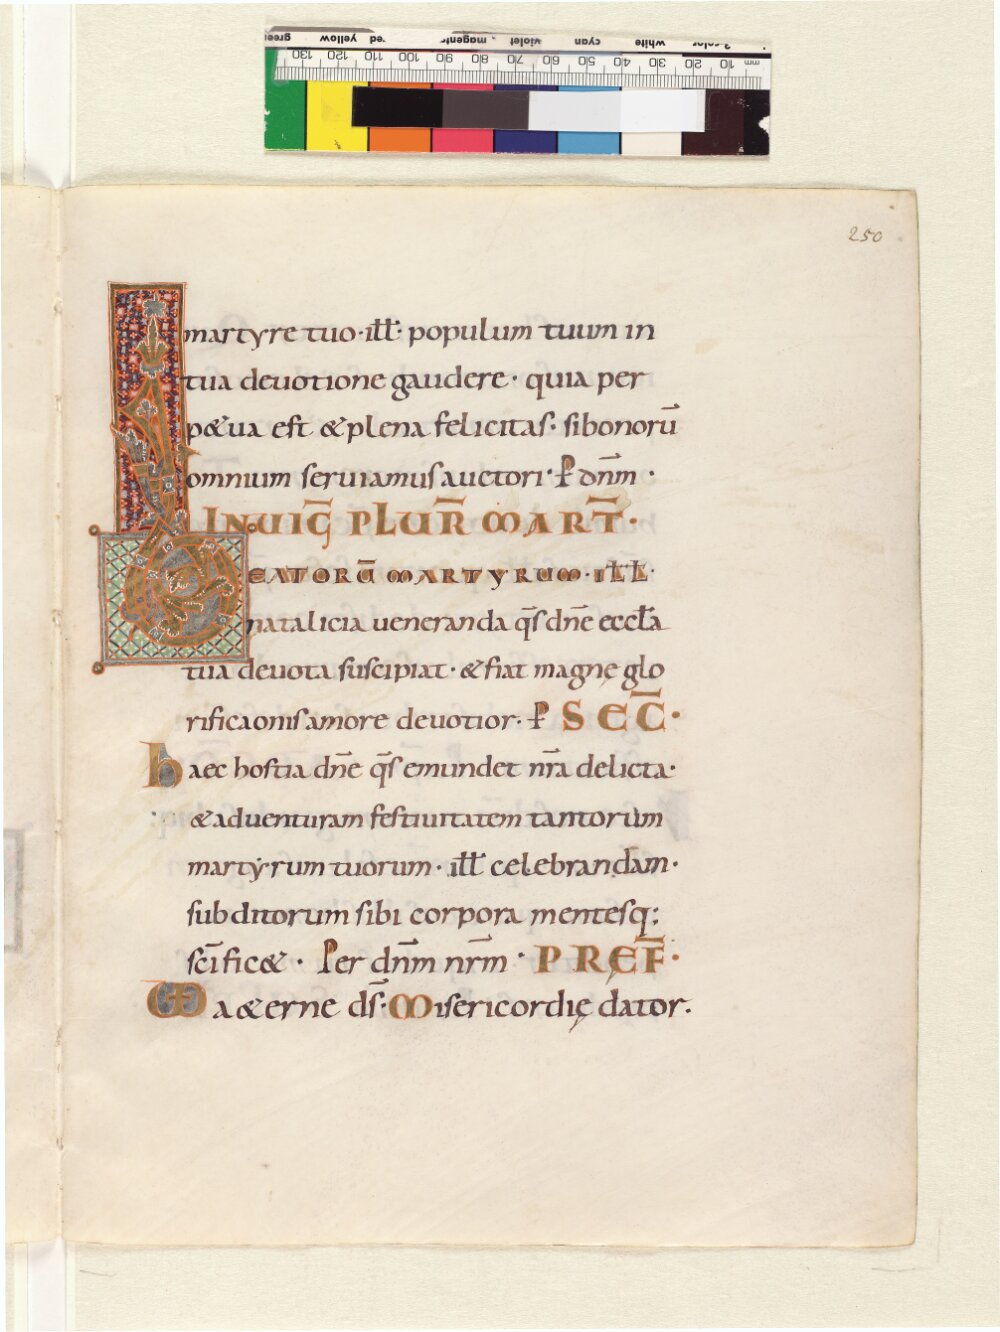 green yellow red magenta violet cyan white 3-color
130 120 110 100 90 80 70 60 50 40 30 20 10 mm
250
martyre tuo·ill̅: populum tuum in
tua deuotione gaudere· quia per
p&ua est & plena felicitas· si bonorū
omnium seruiamus auctori· P̄ dn̅m·
IN UIG̅ PLUR̅ MART̅·
BEATORŪ MARTYRUM·ILL̅·
natalicia ueneranda qs̅ dn̅e eccl̅a
tua deuota suscipiat· & fiat magnę glo
rificaonis amore deuotior· P̄ SEC̅·
haec hostia dn̅e qs̅ emundet nr̅a delicta·
& aduenturam festiuitatem tantorum
martẏrum tuorum· ill̅ celebrandam·
subditorum sibi corpora mentesq;
sc̅ific&· Per dn̅m nr̅m· PREF̅·
UD a&erne ds̅· Misericordię dator.